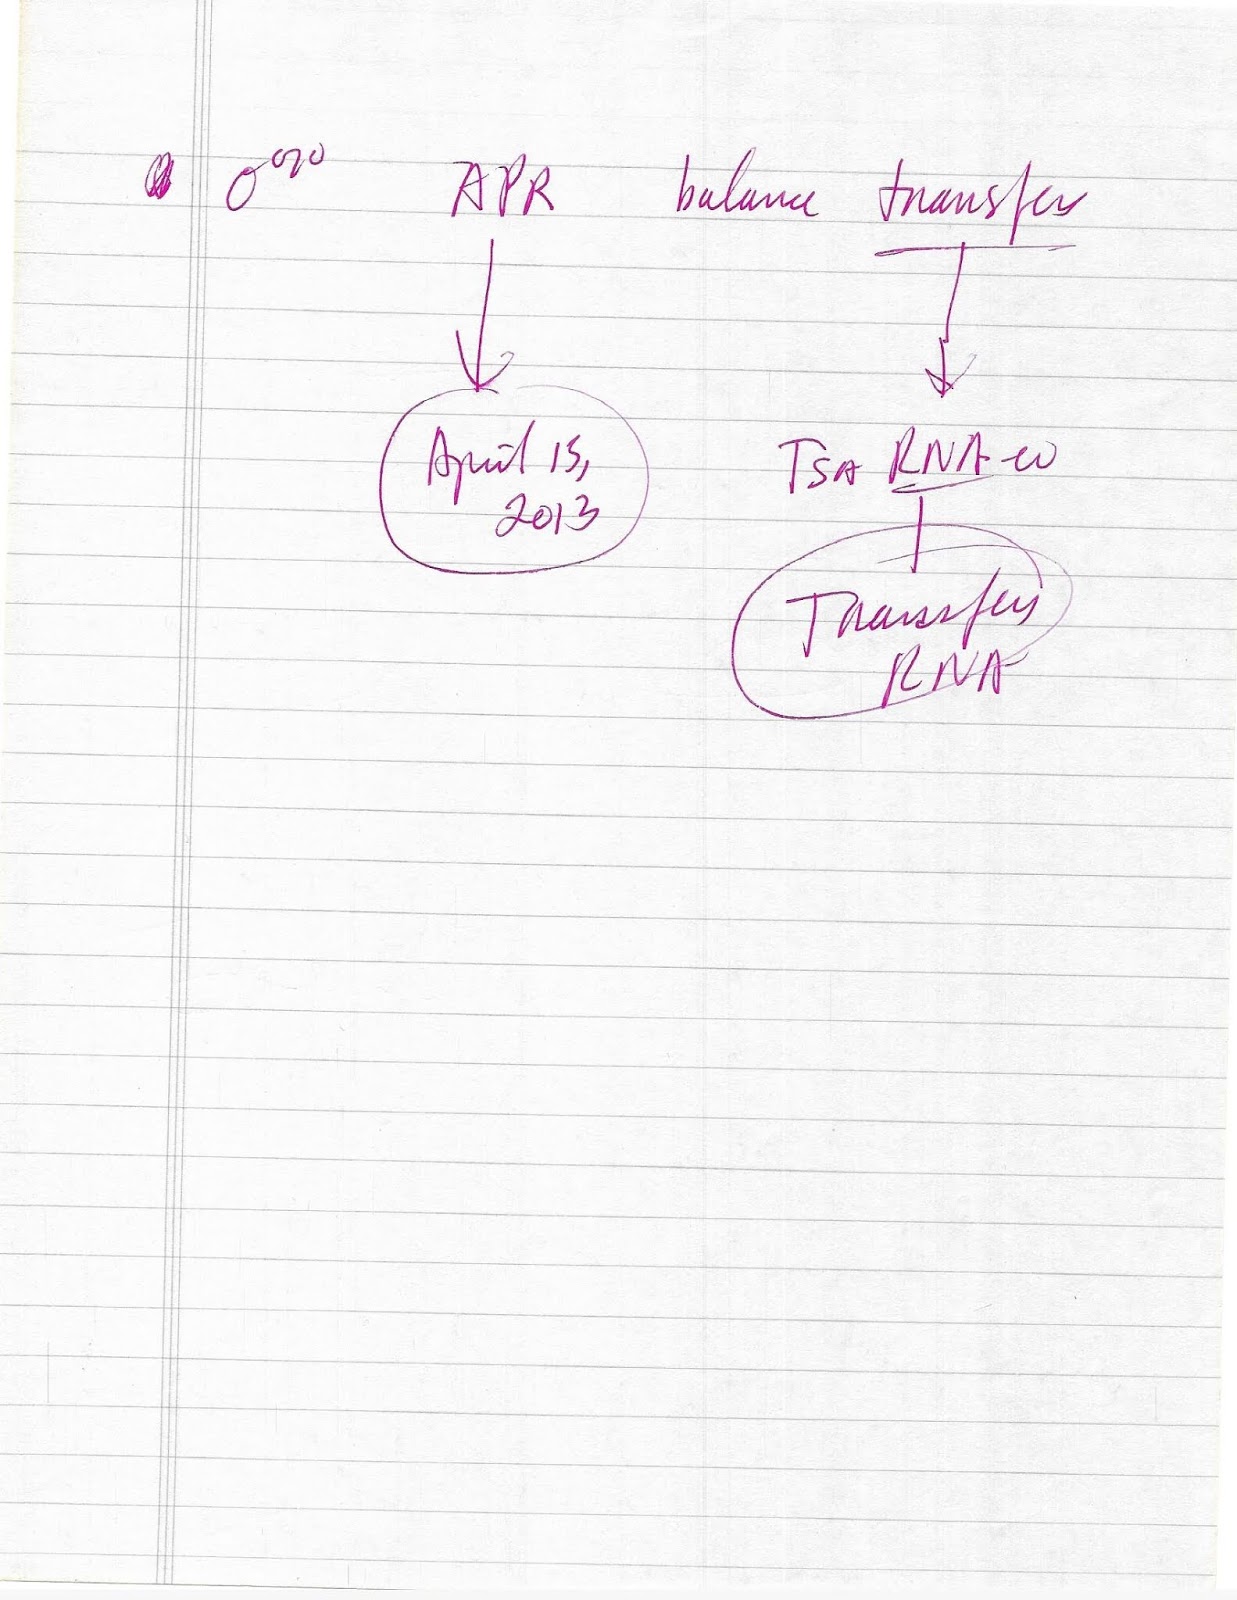 0% APR balance transfer
April 15,
2013
TSARNAEV
Transfer
RNA